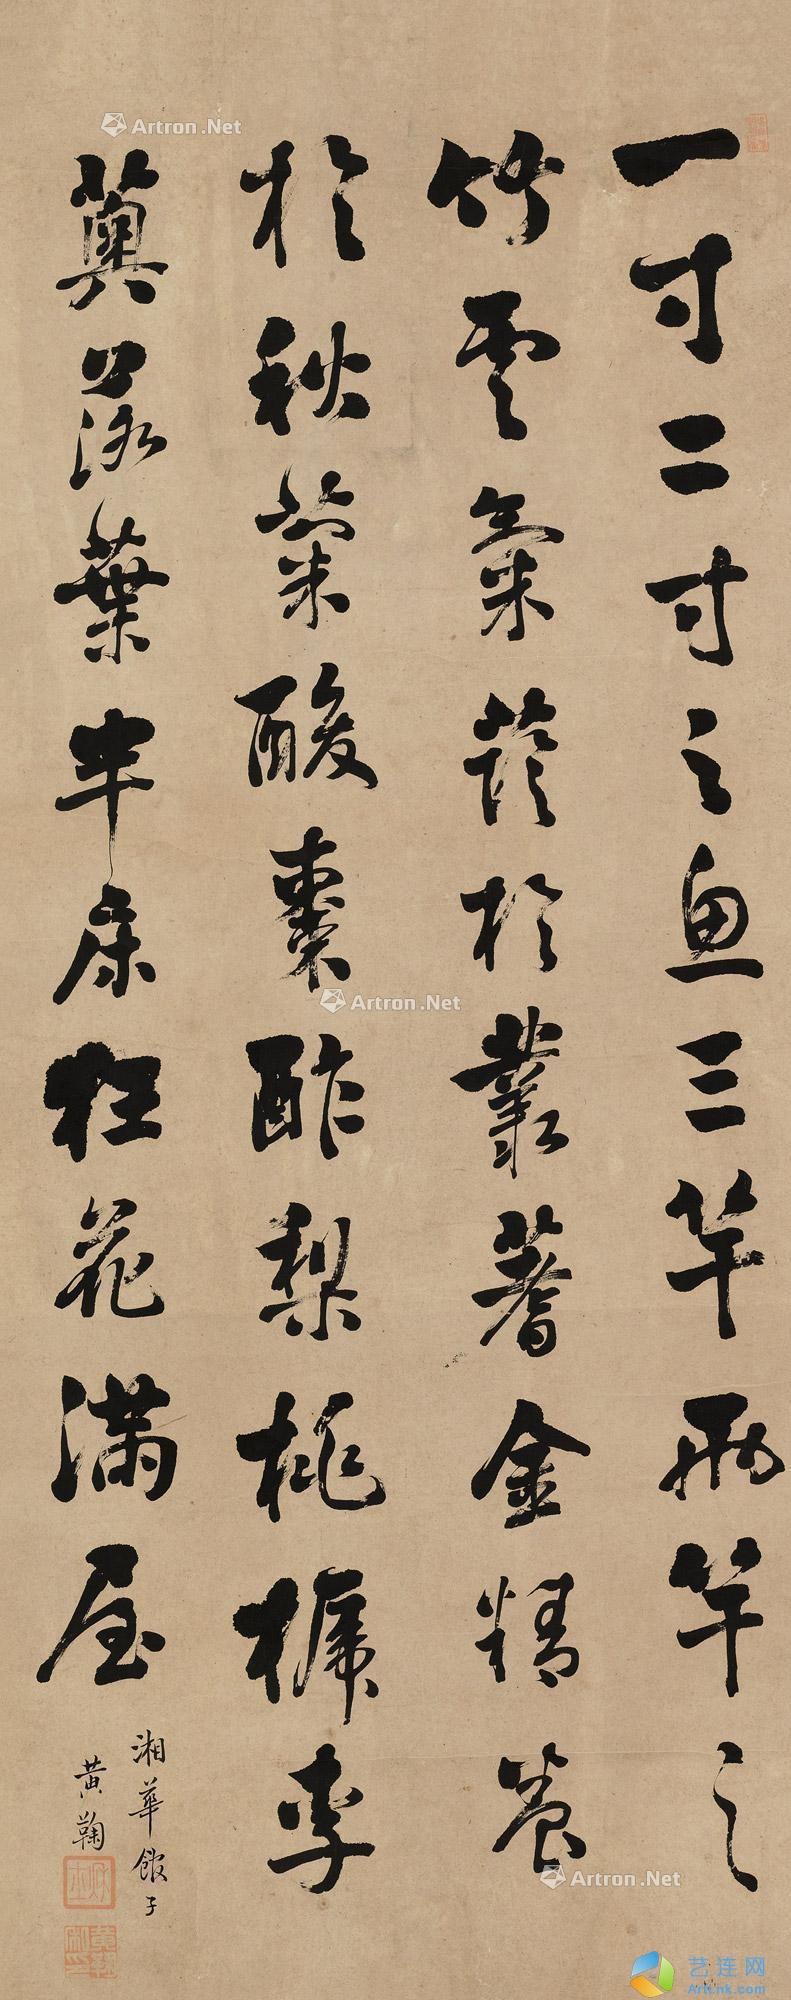 一寸二寸之魚三竿兩竿之
竹雲氣蔭於叢蓍金精養
於秋菊酸棗酢梨桃榹李
薁落葉半床狂花滿屋
湘華館子
黃鞠
Artron.Net
Artron.Net
Artron.Net
Artron.Net
Artron.Net
艺连网
Artlnk.com